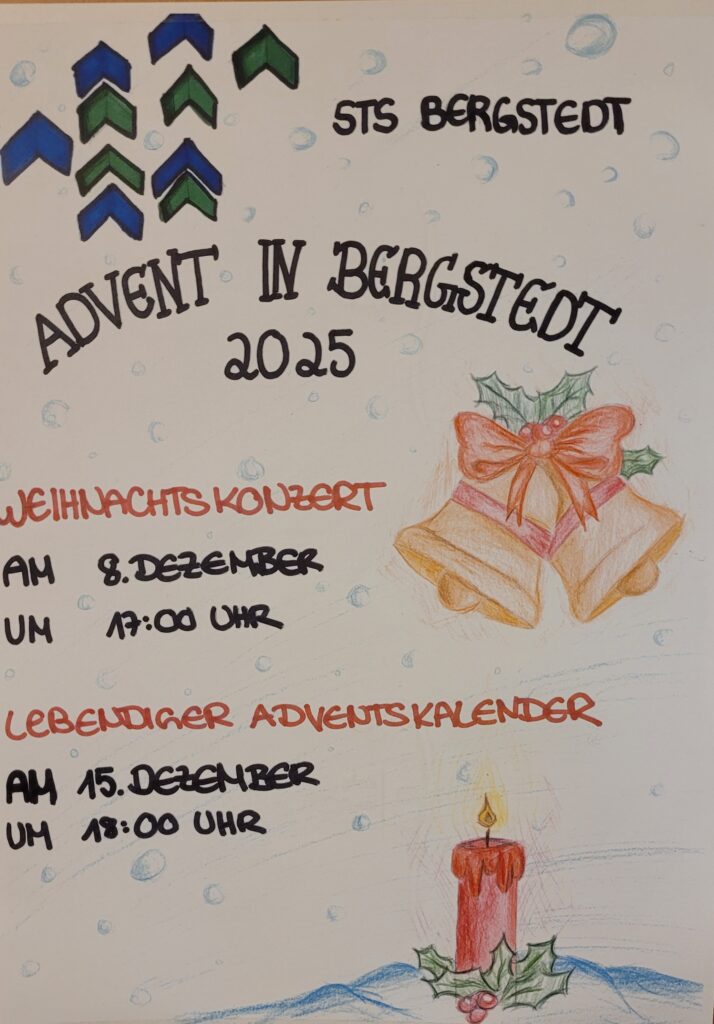 STS BERGSTEDT
ADVENT IN BERGSTEDT
2025
WEIHNACHTSKONZERT
AM 8. DEZEMBER
UM 17:00 UHR
LEBENDIGER ADVENTSKALENDER
AM 15. DEZEMBER
UM 18:00 UHR